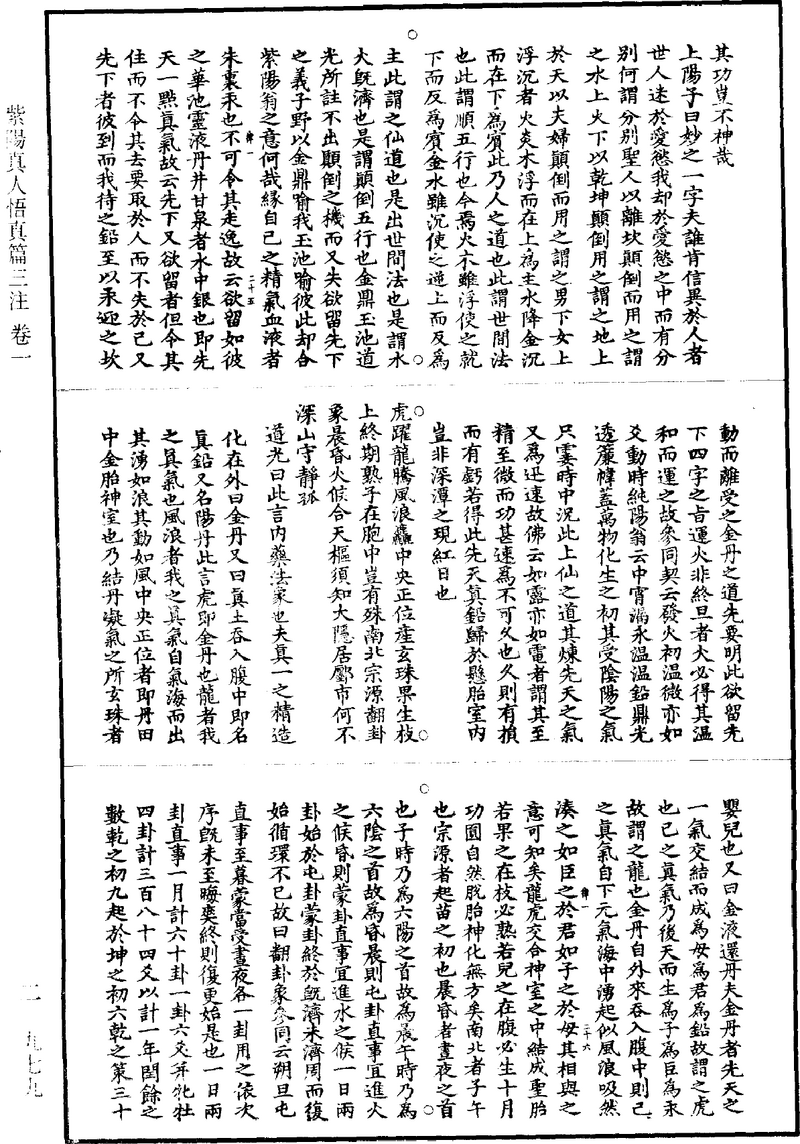 其功豈不神哉
上陽子曰妙之一字夫誰肯信異於人者
世人迷於愛慾我却於愛慾之中而有分
別何謂分別聖人以離坎顛倒而用之謂
之水上火下以乾坤顛倒用之謂之地上
於天以夫婦顛倒而用之謂之男下女上
浮沉者火炎木浮而在上為主水降金沉
而在下為賓此乃人之道也此謂世間法
也此謂順五行也今焉火木雖浮使之就
下而反為賓金水雖沉使之逆上而反為
主此謂之仙道也是出世間法也是謂水
火既濟也是謂顛倒五行也金鼎玉池道
光所註不出顛倒之機而又失欲留先下
之義子野以金鼎喻我玉池喻彼此却合
紫陽翁之意何哉緣自己之精氣血液者
朱裏汞也不可令其走逸故云欲留如彼
之華池靈液丹井甘泉者水中銀也即先
天一點真氣故云先下又欲留者但令其
住而不令其去要取於人而不失於己又
先下者彼到而我待之鉛至以汞迎之坎
動而離受之金丹之道先要明此欲留先
下四字之旨運火非終旦者大必得其溫
和而運之故參同契云發火初溫微亦如
爻動時純陽翁云中宵漏永溫溫鉛鼎光
透簾幃蓋萬物化生之初其受陰陽之氣
只霎時中況此上仙之道其煉先天之氣
又為迅速故佛云如露亦如電者謂其至
精至微而功甚速為不可久也久則有損
而有虧若得此先天真鉛歸於懸胎室內
豈非深潭之現紅日也
虎躍龍騰風浪麤中央正位產玄珠果生枝
上終期熟子在胞中豈有殊南北宗源翻卦
象晨昏火候合天樞須知大隱居鄽市何必
深山守靜孤
道光曰此言內藥法象也夫真一之精造
化在外曰金丹又曰真土吞入腹中即名
真鉛又名陽丹此言虎即金丹也龍者我
之真氣也風浪者我之真氣自氣海而出
其湧如浪其動如風中央正位者即丹田
中金胎神室也乃結丹凝氣之所玄珠者
嬰兒也又曰金液還丹夫金丹者先天之
一氣交結而成為母為君為鉛故謂之虎
也己之真氣乃後天而生為子為臣為汞
故謂之龍也金丹自外來吞入腹中則己
之真氣自下元氣海中湧起似風浪吸然
湊之如臣之於君如子之於母其相與之
意可知矣龍虎交合神室之中結成聖胎
若果之在枝必熟若兒之在腹必生十月
功圓自然脫胎神化無方矣南北者子午
也宗源者起苗之初也晨昏者晝夜之首
也子時乃為六陽之首故為晨午時乃為
六陰之首故為昏晨則屯卦直事宜進火
之候昏則蒙卦直事宜進水之候一日兩
卦始於屯卦蒙卦終於既濟未濟周而復
始循環不已故曰翻卦象參同云朔旦屯
直事至暮蒙當受晝夜各一卦用之依次
序既未至晦爽終則復更始是也一日兩
卦直事一月計六十卦一卦六爻并牝牡
四卦計三百八十四爻以計一年閏餘之
數乾之初九起於坤之初六乾之策三十
紫陽真人悟真篇三注 卷一
二 九七九